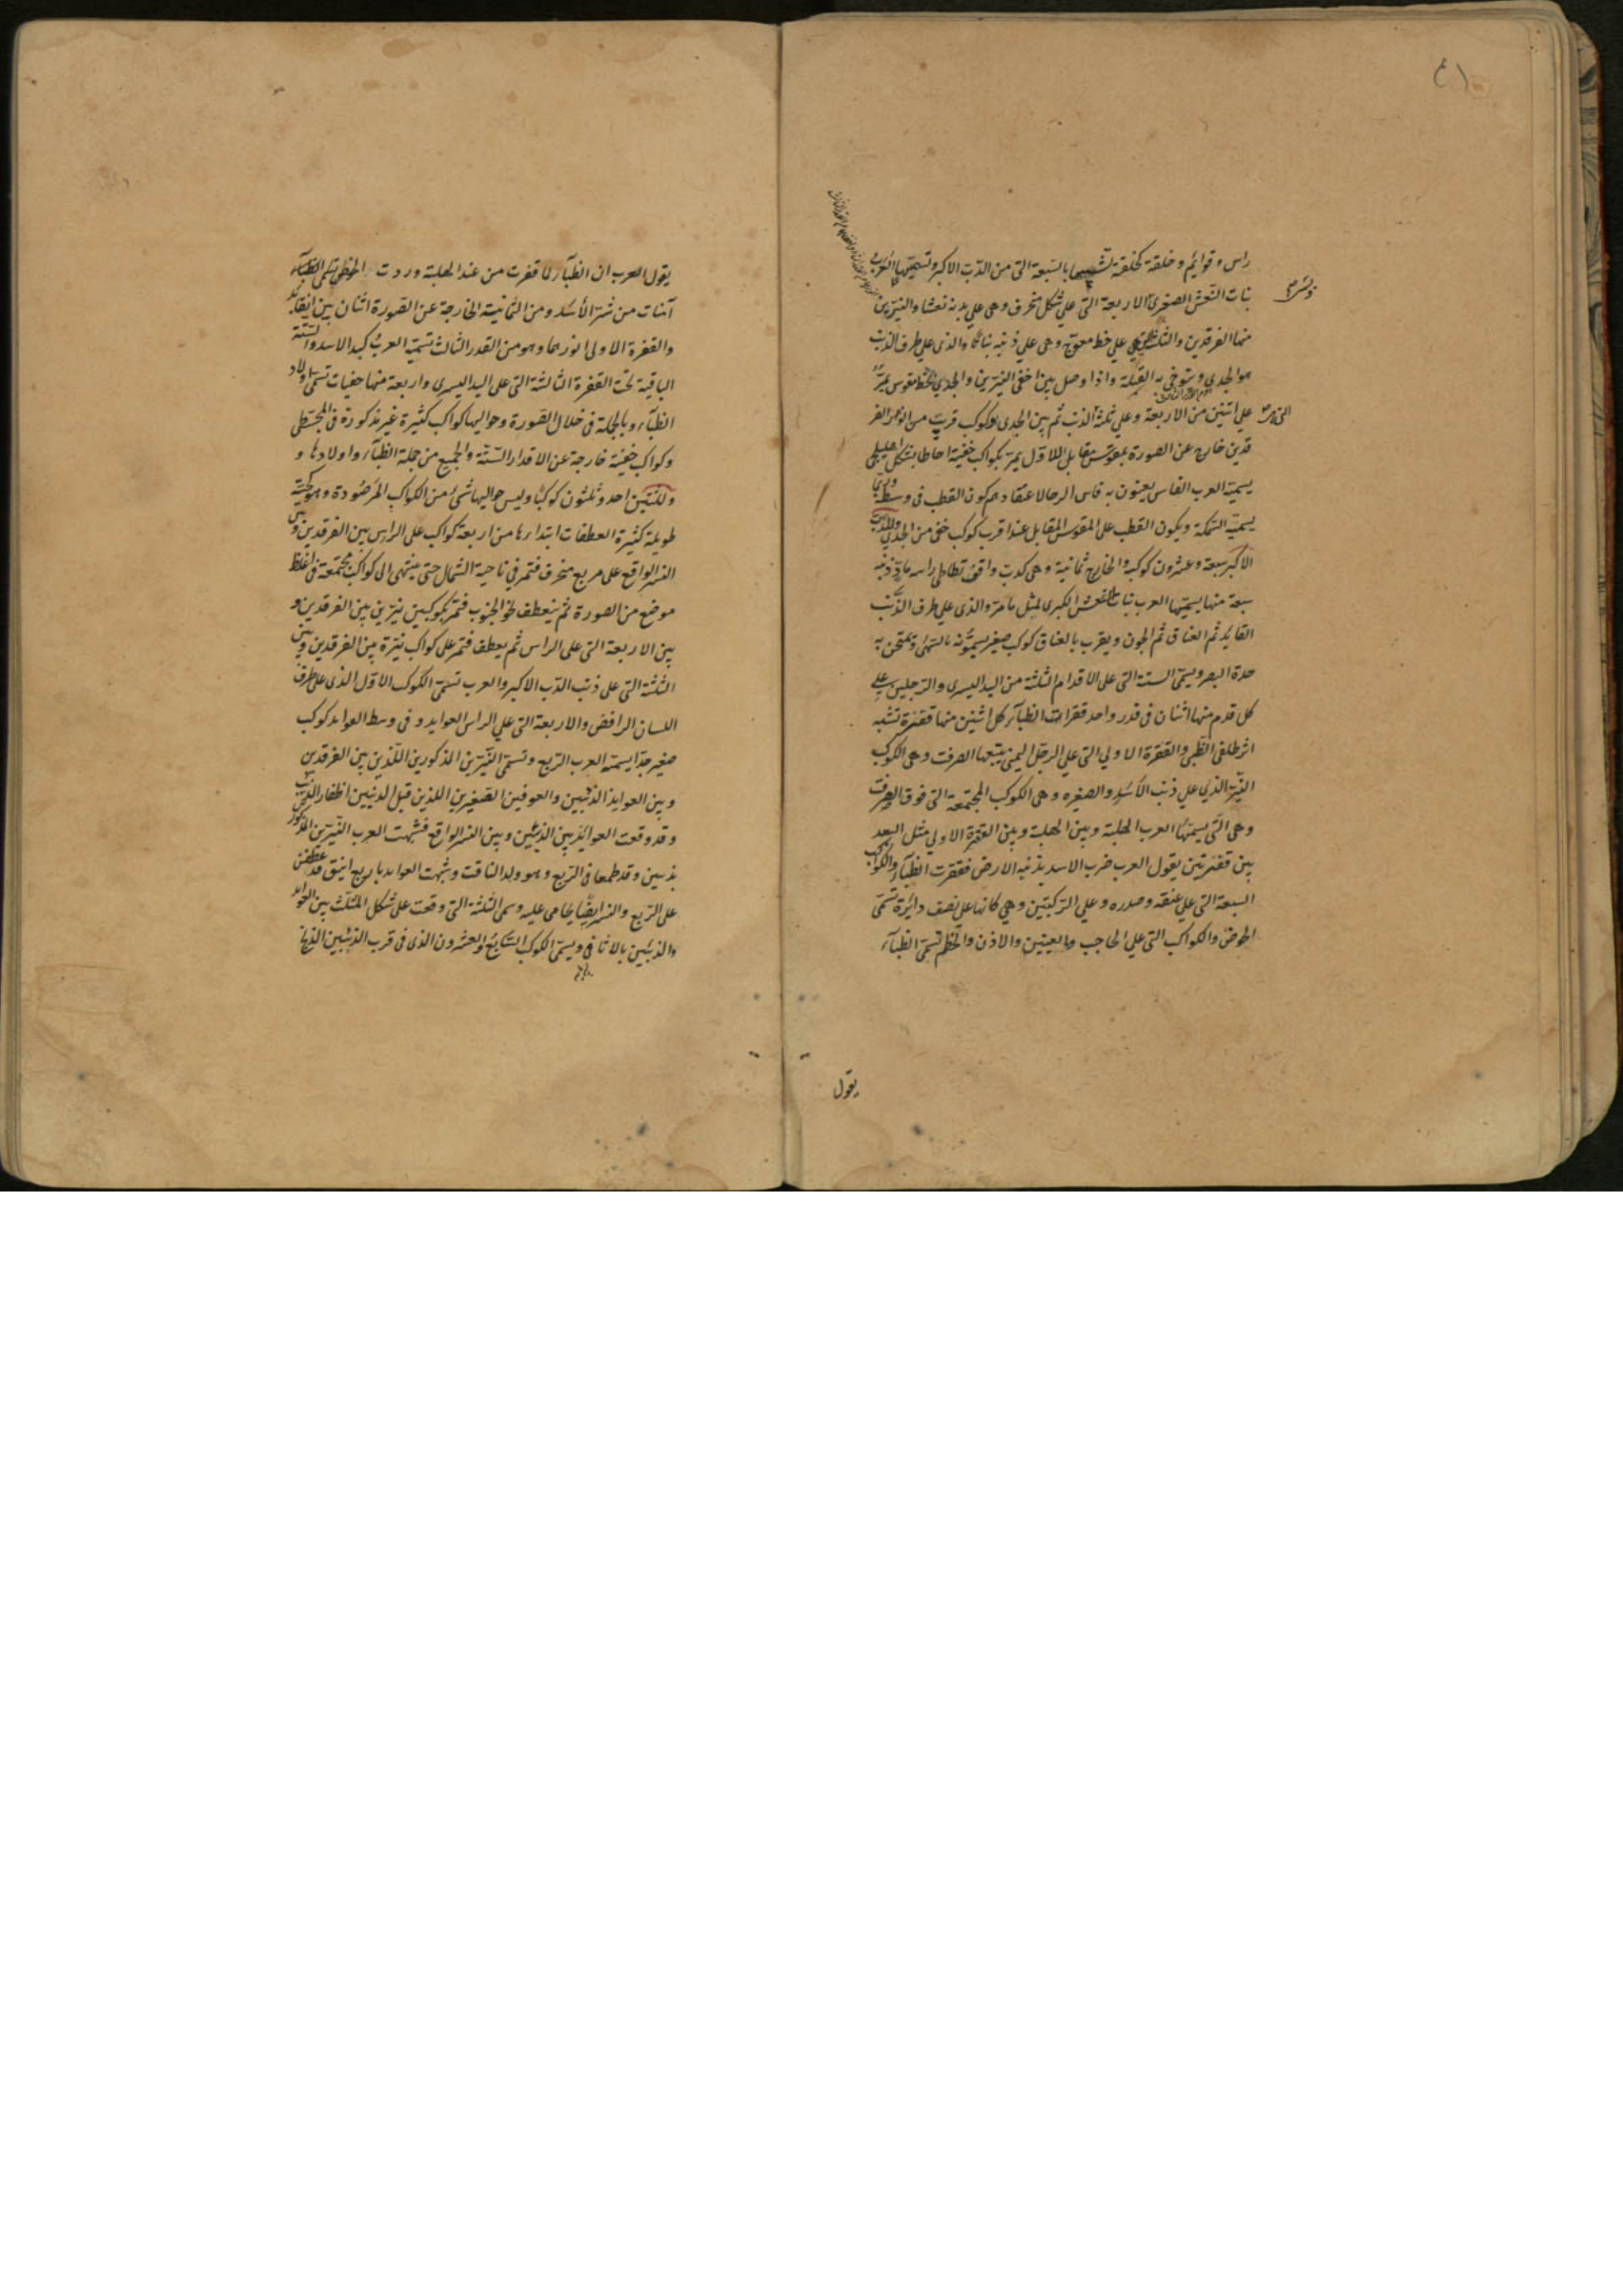 ٤١
راس وقوايم وخلقة كخلقة تشبيها بالسبعة التى من الدّب الاكبر وتسميّها العرب
بنات النّعش الصغرى الاربعة التى على شكل منحرف وهى على بدنه نعشا والنيّرين
منها الفرقدين والثلثة التى على خط معوّج وهى على ذنبه بناتها والذى على طرف الذنب
هو الجدى ويتوخى به القبلة واذا وصل بين اخفى النيّرين والجدى بخط مقوس يمرّ
على اثنين من الاربعة وعلى ثلثة الذنب ثم بين الجدى وكوكب قريب من انور الفر
قدين خارج عن الصورة بمقوّس مقابل للاوّل يمرّ بكواكب خفية احاطا بشكل اهليلجى
يسميّه العرب الفاس يعنون به فاس الرحا لاعتقادهم كون القطب فى وسطه وربّما
يسميّه السّمكة ويكون القطب على المقوس المقابل عند اقرب كوكب خفى من الجدى وللدّب
الاكبر سبعة وعشرون كوكبا والخارج ثمانية وهى كدب واقف تطاطى راسه مادّ ذنبه
سبعة منها يسميّها العرب بنات النعش الكبرى لمثل ما مرّ والذى على طرف الذّنب
القايد ثم العناق ثم الجون وبقرب بالعناق كوكب صغير يسمّونه بالسّهى ويمتحن به
حدة البصر ويسمّى الستة التى على الاقدام الثلثة من اليد اليسرى والرّجلين على
كل قدم منها اثنان فى قدر واحد قفزات الظبآء كل اثنين منها قفزة تشبه
اثر ظلفى الظّبى والقفزة الاولى التى على الرجل اليمنى يتبعها الصرفة وهى الكوكب
النيّر الذى على ذنب الاسد والصغيره وهى الكوكب المجتمعة التى فوق الصرفة
وهى الّتى يسميّها العرب الهلبة وبين الهلبة وبين القفزة الاولى مثل البعد
بين قفزتين يقول العرب ضرب الاسد بذنبه الارض فقفزت الظبآء والكواكب
السبعة التى على عنقه وصدره وعلى الرّكبتين وهى كانها على نصف دائرة تسمّى
الحوض والكواكب التى على الحاجب والعينين والاذن والخطم تسمّى الظبآء
يقول
يقول العرب ان الظبآء لما قفزت من عند الهلبة وردت الحوض
آمنات من شرّ الأسد ومن الثمانية الخارجة عن الصّورة اثنان بين القايد
والقفزة الاولى انورهما وهو من القدر الثالث تسميّه العرب كبد الاسد والستّة
الباقية تحت القفزة الثالثة التى على اليد اليسرى واربعة منها خفيات تسمّى اولاد
الظبآء وبالجملة فى خلال الصّورة وحواليها كواكب كثيرة غير مذكورة فى المجسطى
وكواكب خفيّة خارجة عن الاقدار السّتّة والجميع من جملة الظبآء واولادها و
وللتنّين احد وثلثون كوكبًا وليس حواليها شئ من الكواكب المرصُودة وهو كحيّة
طويلة كثيرة العطفات ابتدارها من اربعة كواكب على الراس بين الفرقدين وبين
النسر الواقع على مربع منحرف فتمر فى ناحية الشمال حتى ينتهى الى كواكب مجتمعة فى اغلظ
موضع من الصورة ثم ينعطف نحو الجنوب فتمر بكوكبين نيّرين بين الفرقدين و
بين الاربعة التى على الراس ثم يعطف فتمر على كواكب نيّرة بين الفرقدين وبين
الثلثة التى على ذنب الدّب الاكبر والعرب تسمّى الكوكب الاوّل الذى على طرف
اللسان الرافض والاربعة التى على الراس العوايد وفى وسط العوايد كوكب
صغير جدّا يسمّه العرب الرّبع وتسمّى النّيّرين المذكورين اللّذين بين الفرقدين
وبين العوايذ الذئبين والعوفين الصّغيرين اللذين قبل الذئبين اظفار الذئب
وقد وقعت العوائد بين الذئبين وبين النسر الواقع فشبهت العرب النّيّرين المذكور
بذئبين وقد طمعا فى الرّبع وهو ولد الناقة وشبهت العوايد باربع اينق قد عطفن
على الرّبع والنسر ايضًا يحامى عليه وسمى الثلثة التى وقعت على شكل المثلّث بين العوايد
والذئبين بالاثافى ويسمّى الكوكب السّابع والعشرون الذى فى قرب الذئبين الذيخ